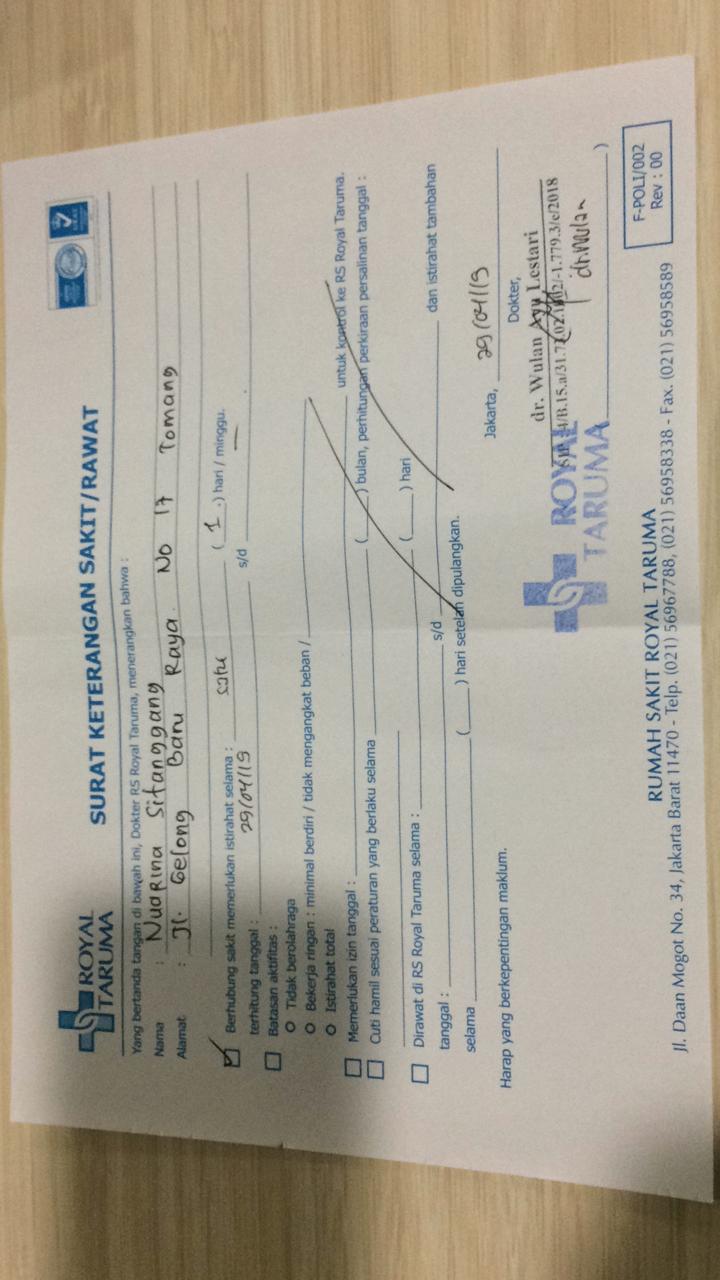 ROYAL TARUMA
SURAT KETERANGAN SAKIT/RAWAT
Yang bertanda tangan di bawah ini, Dokter RS Royal Taruma, menerangkan bahwa :
Nama : Nuarina Sitanggang
Alamat : Jl. Gelong Baru Raya No 17 Tomang
Berhubung sakit memerlukan istirahat selama : satu ( 1 ) hari / minggu.
terhitung tanggal : 29/04/19 s/d —
Batasan aktifitas :
Tidak berolahraga
Bekerja ringan : minimal berdiri / tidak mengangkat beban /
Istirahat total
Memerlukan izin tanggal : untuk kontrol ke RS Royal Taruma.
Cuti hamil sesuai peraturan yang berlaku selama ( ) bulan, perhitungan perkiraan persalinan tanggal :
Dirawat di RS Royal Taruma selama : ( ) hari
tanggal : s/d dan istirahat tambahan
selama ( ) hari setelah dipulangkan.
Harap yang berkepentingan maklum.
Jakarta, 29/04/19
Dokter,
dr. Wulan Ayu Lestari
ROYAL TARUMA
dr. Wulan )
RUMAH SAKIT ROYAL TARUMA
Jl. Daan Mogot No. 34, Jakarta Barat 11470 - Telp. (021) 56967788, (021) 56958338 - Fax. (021) 56958589
F-POLI/002
Rev : 00